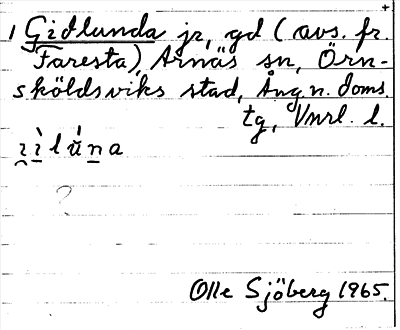 1 Gidlunda jr, gd (avs. fr.
Faresta), Arnäs sn, Örn-
sköldsviks stad, Ång.n. doms.
tg, Vnrl. l.
?
Olle Sjöberg 1965.